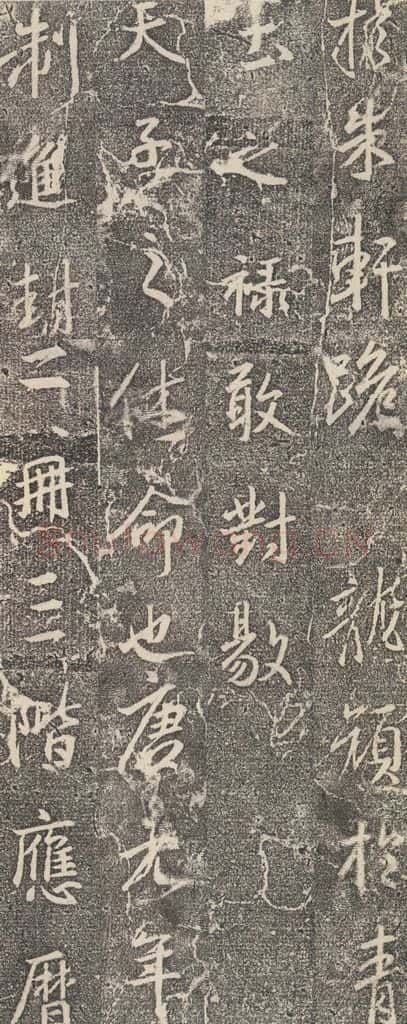 朱軒龍額於青
土之祿敢對敭
天子之休命也唐元年
制進封二冊三階應曆